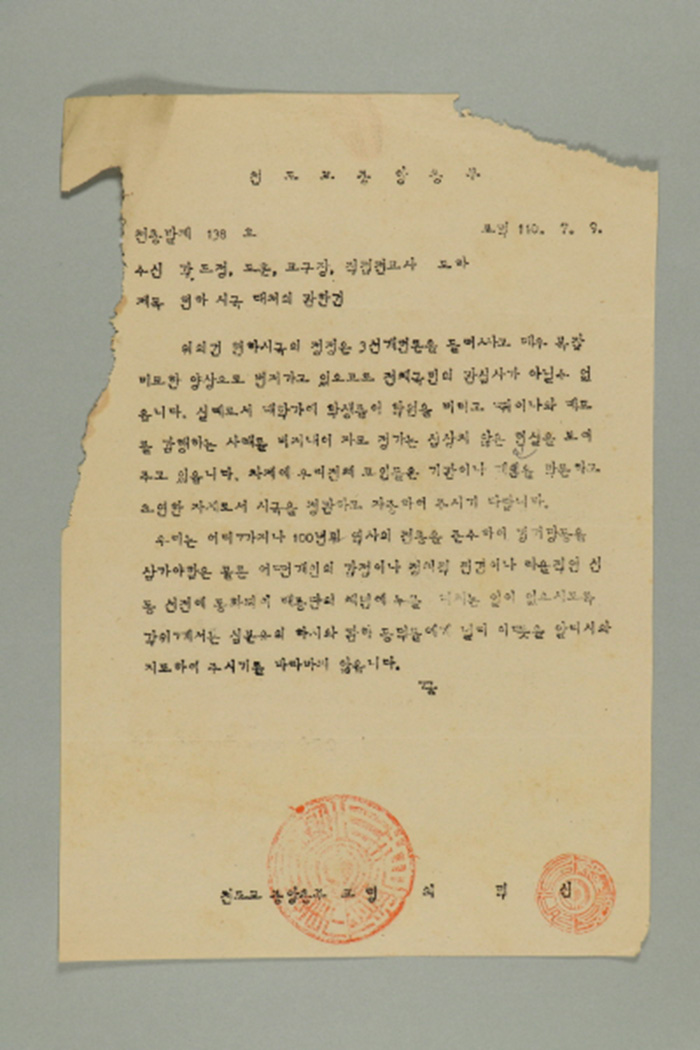 천 도 교 중 앙 총 부
천총발제 138 호 포덕 110. 7. 9.
수신 각 도정, 도훈, 교구장, 직접전교사 도하
제목 현하 시국 대처의 관한건
위의건 현하시국의 정정은 3선개헌론을 둘러싸고 매우 복잡
미묘한 양상으로 번저가고 있으므로 전체국민의 관심사가 아닐수 없
읍니다. 실례로서 대학가에 학생들이 학원을 비티고 데모
를 감행하는 사태를 비저내여 자모 정가는 심상치 않은 현실을 보여
주고 있읍니다. 차제에 우리전체 교인들은 기관이나 개인을 막론하고
초연한 자세로서 시국을 정관하고 자중하여 주시기 바랍니다.
우리는 어데까지나 100년 역사의 전통을 준수하여 경거망동을
삼가야함은 물론 어떤개인의 감정이나 정치적 편견이나 타율적인 선
동 선전에 동화되여 대종단의 체념에 누를 끼치는 일이 없으시도록
각위께서는 심분유의 하시와 관하 동덕들에게 널리 이뜻을 알리시와
지도하여 주시기를 바라마지 않읍니다.
끝
천도교 중앙총부 교령 최 덕 신